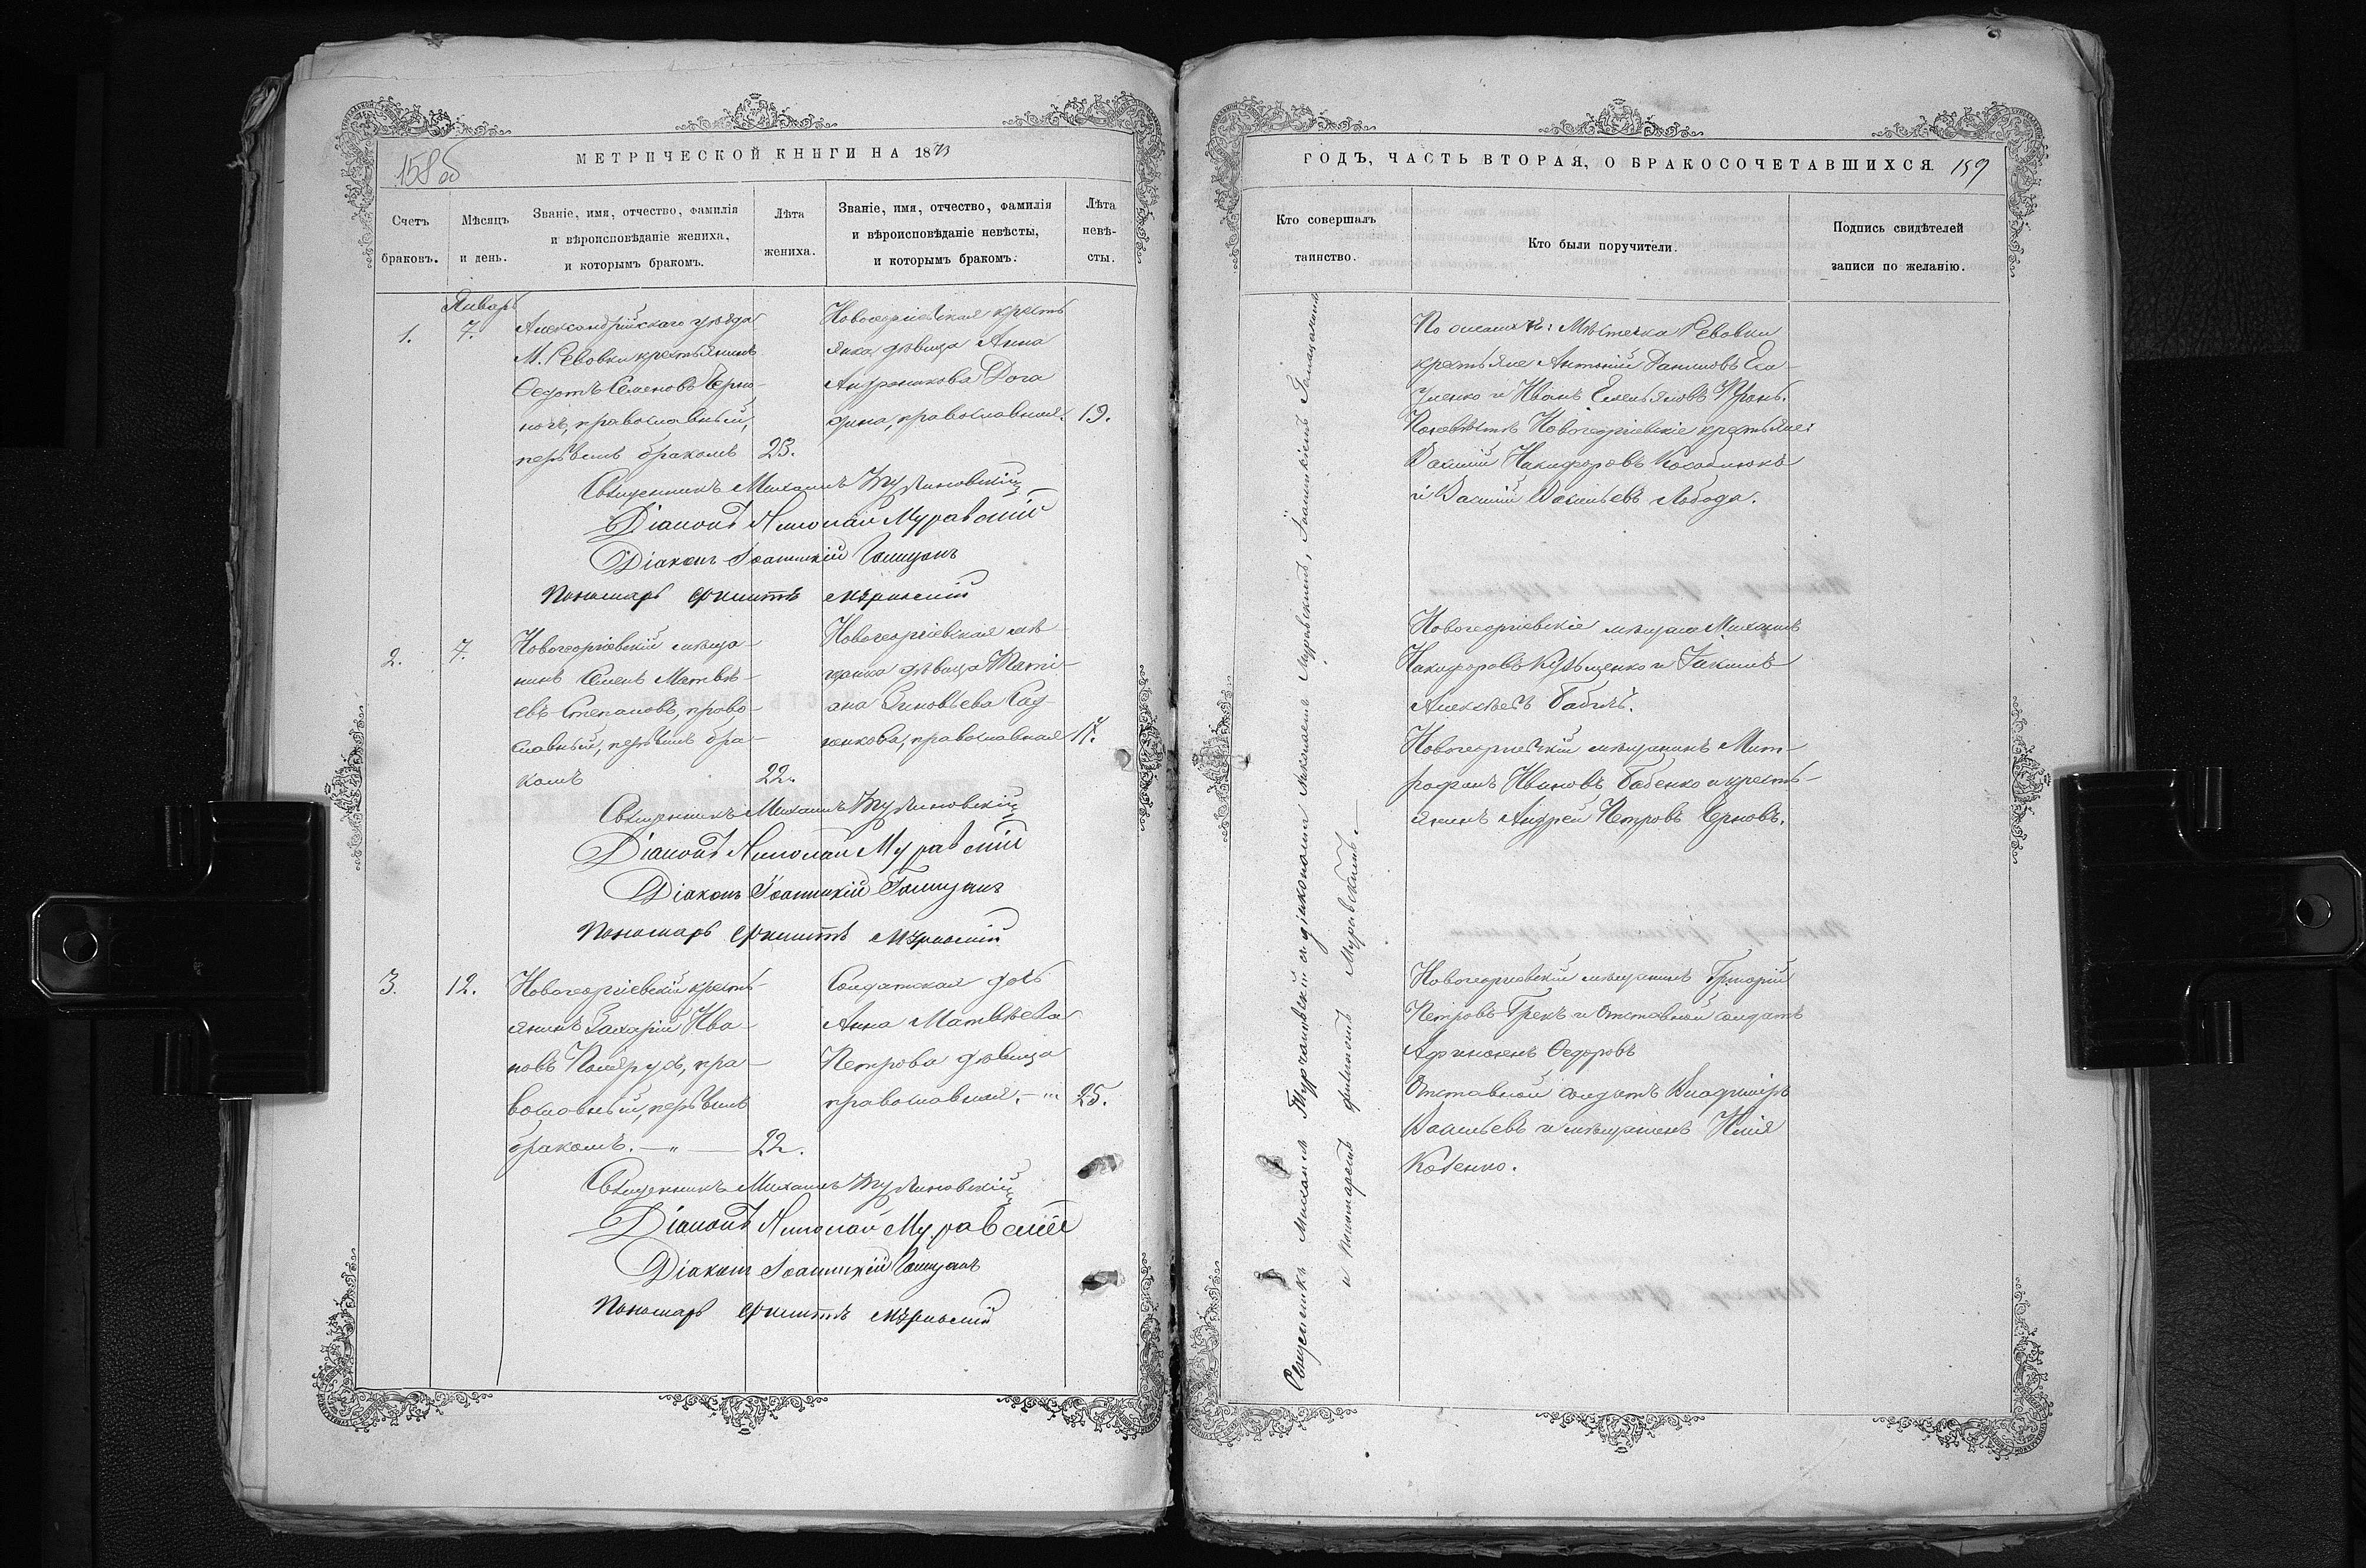 158 об
МЕТРИЧЕСКОЙ КНИГИ НА 1873
Счетъ браковъ.
Мѣсяцъ и день.
Званіе, имя, отчество, фамилія
и вѣроисповѣданіе жениха,
и которымъ бракомъ.
Лѣта
жениха.
Званіе, имя, отчество, фамилія
и вѣроисповѣданіе невѣсты,
и которымъ бракомъ.
Лѣта
невѣ-
сты.
Январь
1.
7.
Александрійскаго уѣзда
М. Ревовки крестьянинъ
Ѳедотъ Семеновъ Черно-
ногъ, православный,
первымъ бракомъ
23.
Новогеоргіевская кресть
янка дѣвица Анна
Андроникова
православная.
19.
Священникъ Михаилъ Турчановскій
Діаконъ Николай Муравскій
Діаконъ Іоанникій
Пономарь Филиппъ Муравскій
2.
7.
Новогеоргіевскій мѣща-
нинъ Семенъ Матвѣ-
евъ Степановъ, право-
славный, первымъ бра-
комъ
22.
Новогеоргіевская мѣ
щанка дѣвица Тати-
ана Зиновьева
православная
17.
Священникъ Михаилъ Турчановскій
Діаконъ Николай Муравскій
Діаконъ Іоанникій
Пономарь Филиппъ Муравскій
3.
12.
Новогеоргіевскій кресть-
янинъ Захарій Ива-
новъ пра-
вославный, первымъ
бракомъ.
22.
Солдатская дочь
Анна Матвѣева
Петрова дѣвица
православная.
25.
Священникъ Михаилъ Турчановскій
Діаконъ Николай Муравскій
Діаконъ Іоанникій
Пономарь Филиппъ Муравскій
ГОДЪ, ЧАСТЬ ВТОРАЯ, О БРАКОСОЧЕТАВШИХСЯ. 159
Кто совершалъ
таинство.
Кто были поручители.
Подпись свидѣтелей
записи по желанію.
Священникъ Михаилъ Турчановскій съ діаконами Николаемъ Муравскимъ, Іоанникіемъ
и пономаремъ Филиппомъ Муравскимъ.
По женихѣ: Мѣстечка Ревовки
крестьяне Антоній Даниловъ
и Иванъ Емельяновъ
По невѣстѣ Новогеоргіевскіе крестьяне:
Василій Никифоровъ
и Василій Васильевъ Лобода.
Новогеоргіевскіе мѣщане Михаилъ
Никифоровъ и Іакимъ
Алексѣевъ Бабичъ.
Новогеоргіевскій мѣщанинъ Мит-
рофанъ Ивановъ Бабенко и кресть-
янинъ Андрей Петровъ Черновъ.
Новогеоргіевскій мѣщанинъ Григорій
Петровъ Грекъ и Отставной солдатъ
Ѳедоровъ
Отставной солдатъ Владиміръ
Васильевъ и мѣщанинъ Илія